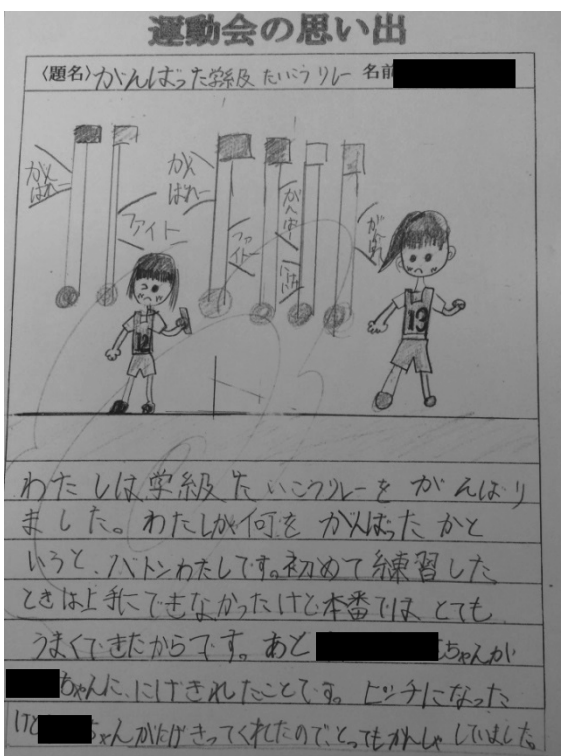 運動会の思い出
〈題名〉がんばった学級たいこうリレー 名前
がんばれー
ファイト
がんばれー
ファイトー
がんばれ
わたしは学級たいこうリレーをがんばり
ました。わたしが何をがんばったかと
いうと、バトンわたしです。初めて練習した
ときは上手にできなかったけど本番では とても
うまくできたからです。あと ちゃんが
ちゃんに、にげきれたことです。ピンチになった
けど ちゃんがにげきってくれたので、とってもかんしゃしていました。
12
13